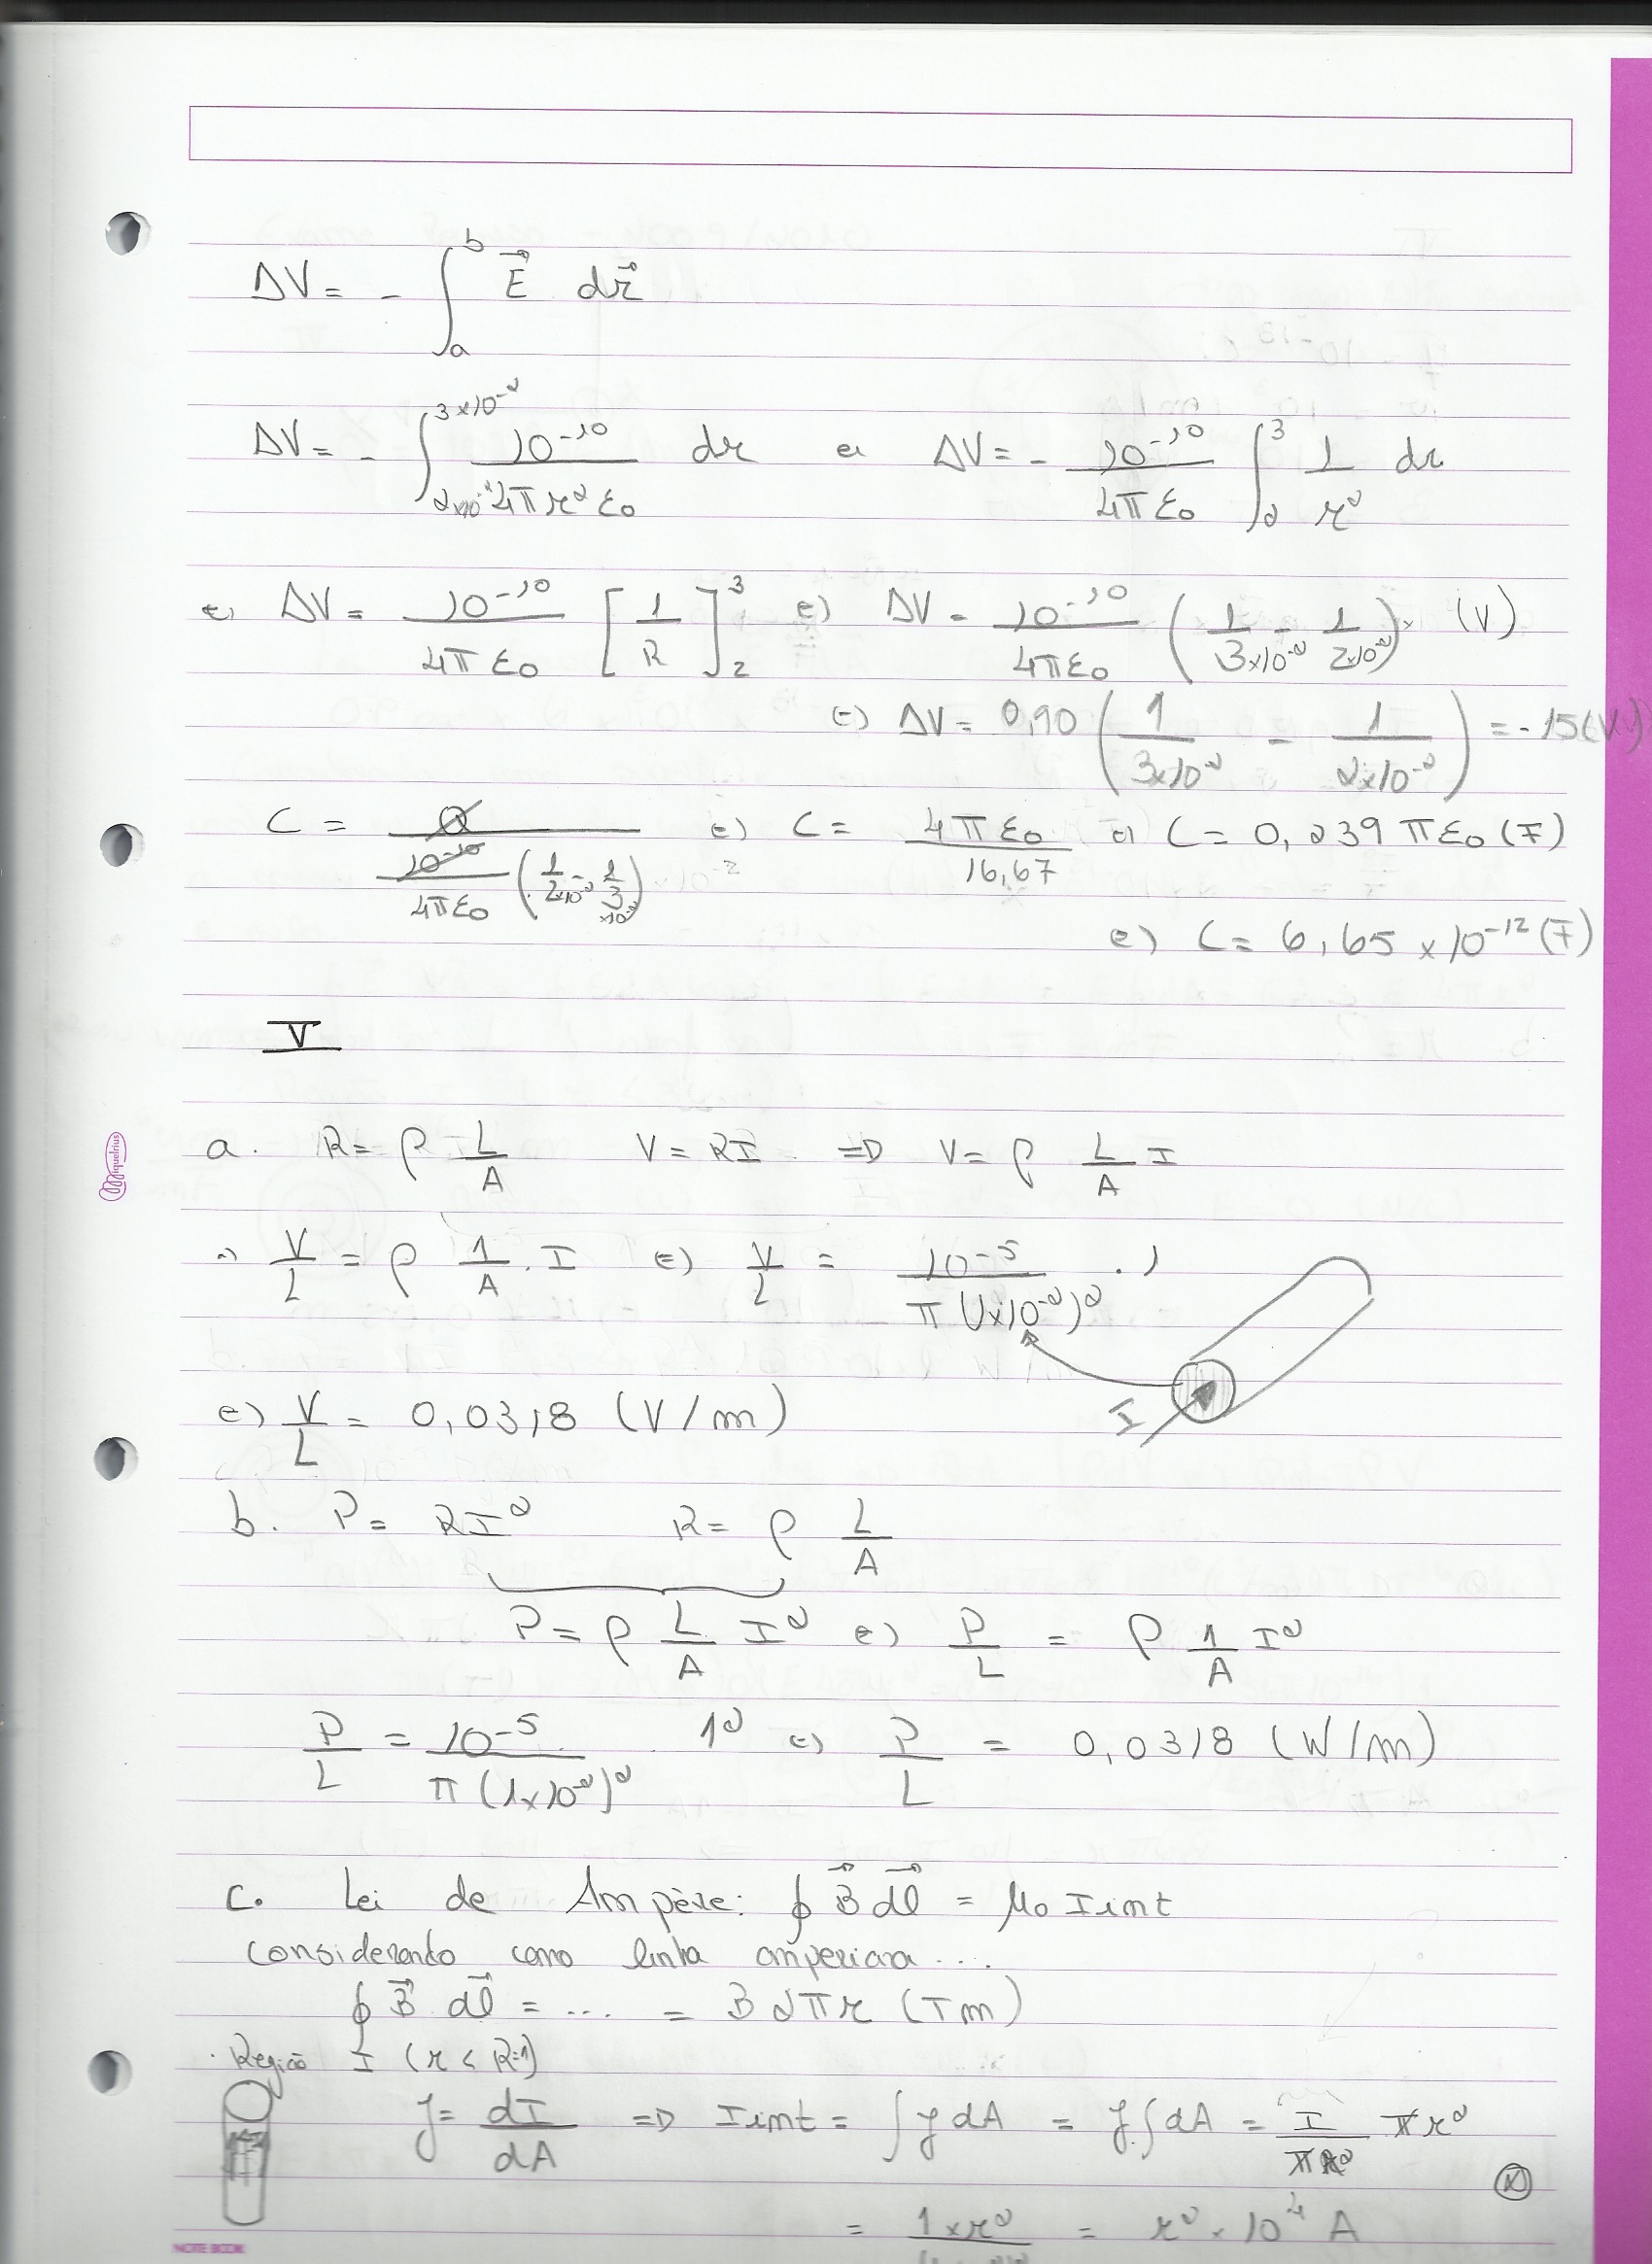 ΔV = - ∫_a^b E⃗ dr⃗
ΔV = - ∫_{2x10^-2}^{3x10^-2} 10^-10 / (4πr²ε₀) dr (=) ΔV = - 10^-10 / (4πε₀) ∫_2^3 1/r² dr
(=) ΔV = 10^-10 / (4πε₀) [1/R]_2^3 (=) ΔV = 10^-10 / (4πε₀) (1/(3x10^-2) - 1/(2x10^-2)) (V)
(=) ΔV = 0,90 (1/(3x10^-2) - 1/(2x10^-2)) = -15 (V)
C = Q / (10^-10/(4πε₀) (1/(2x10^-2) - 1/(3x10^-2))) (=) C = 4πε₀/16,67 (=) C = 0,239 πε₀ (F)
(=) C = 6,65 x 10^-12 (F)
V
a. R = ρ L/A V = RI => V = ρ L/A I
(=) V/L = ρ 1/A . I (=) V/L = 10^-5 / (π (1x10^-2)²) . 1
I
(=) V/L = 0,0318 (V/m)
b. P = RI² R = ρ L/A
P = ρ L/A I² (=) P/L = ρ 1/A I²
P/L = 10^-5 / (π (1x10^-2)²) . 1² (=) P/L = 0,0318 (W/m)
c. Lei de Ampère: ∮ B⃗ dl⃗ = μ₀ I int
considerando como linha amperiana ...
∮ B⃗ . dl⃗ = ... = B 2πr (Tm)
. Região I (r < R=1)
J = dI/dA => I int = ∫ J dA = J ∫ dA = I/(πR²) πr²
= 1 x r² = r² x 10^4 A
miquelrius
NOTE BOOK